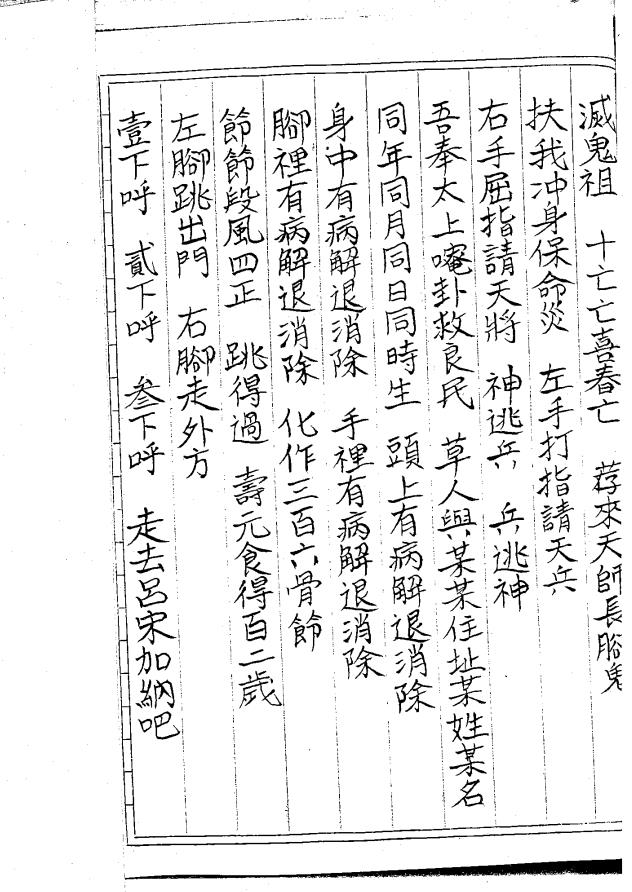 滅鬼祖　十亡亡喜春亡　荐來天師長腳鬼
扶我冲身保命災　左手打指請天兵
右手屈指請天將　神逃兵　兵逃神
吾奉太上唵卦救良民　草人與某某住址某姓某名
同年同月同日同時生　頭上有病解退消除
身中有病解退消除　手裡有病解退消除
腳裡有病解退消除　化作三百六骨節
節節段風四正　跳得過　壽元食得百二歲
左腳跳出門　右腳走外方
壹下呼　貳下呼　叁下呼　走去呂宋加納吧